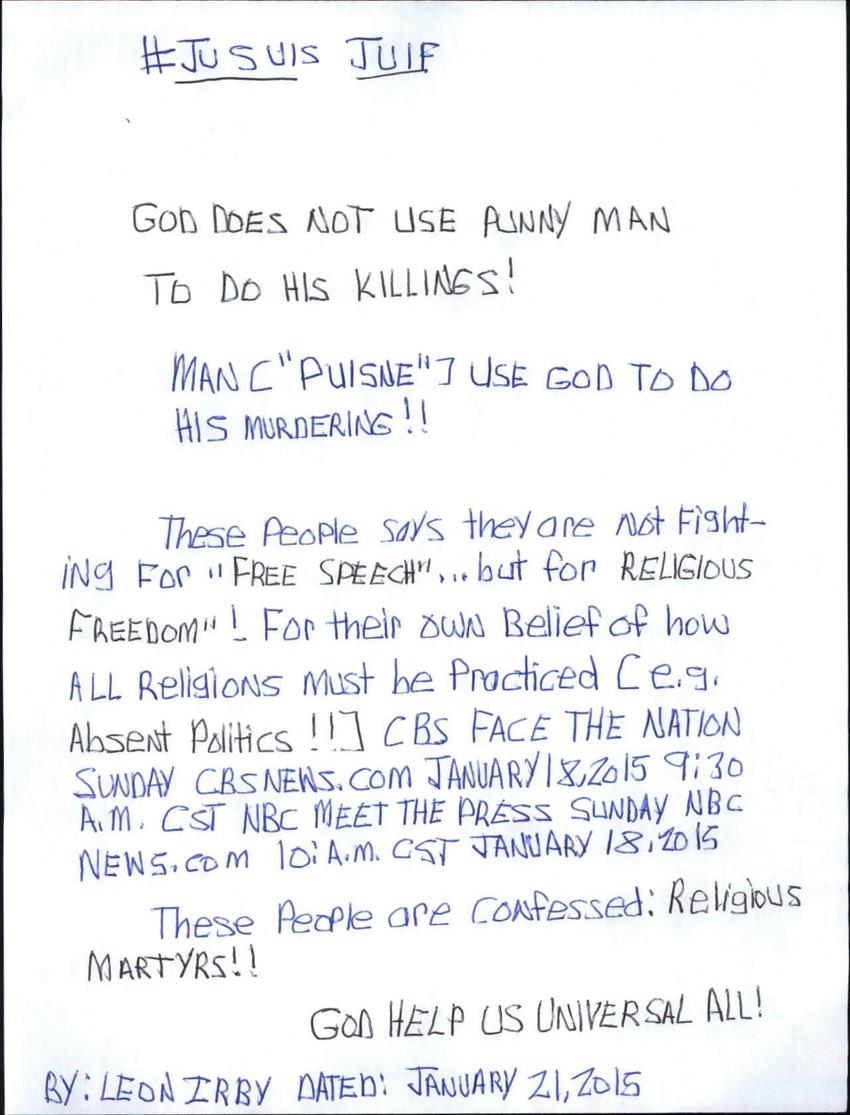 #JUSUIS JUIF
GOD DOES NOT USE PUNNY MAN
TO DO HIS KILLINGS!
MAN ["PUISNE"] USE GOD TO DO
HIS MURDERING!!
These People says they are Not Fight-
iNg For "FREE SPEECH"... but for RELIGIOUS
FREEDOM"! For their OWN Belief of how
ALL Religions Must be Practiced [e.g.
Absent Politics!!] CBS FACE THE NATION
SUNDAY CBSNEWS.COM JANUARY 18,2015 9:30
A.M. CST NBC MEET THE PRESS SUNDAY NBC
NEWS.com 10: A.M. CST JANUARY 18,2015
These People are Confessed: Religious
MARTYRS!!
GOD HELP US UNIVERSAL ALL!
BY: LEON IRBY DATED: JANUARY 21,2015